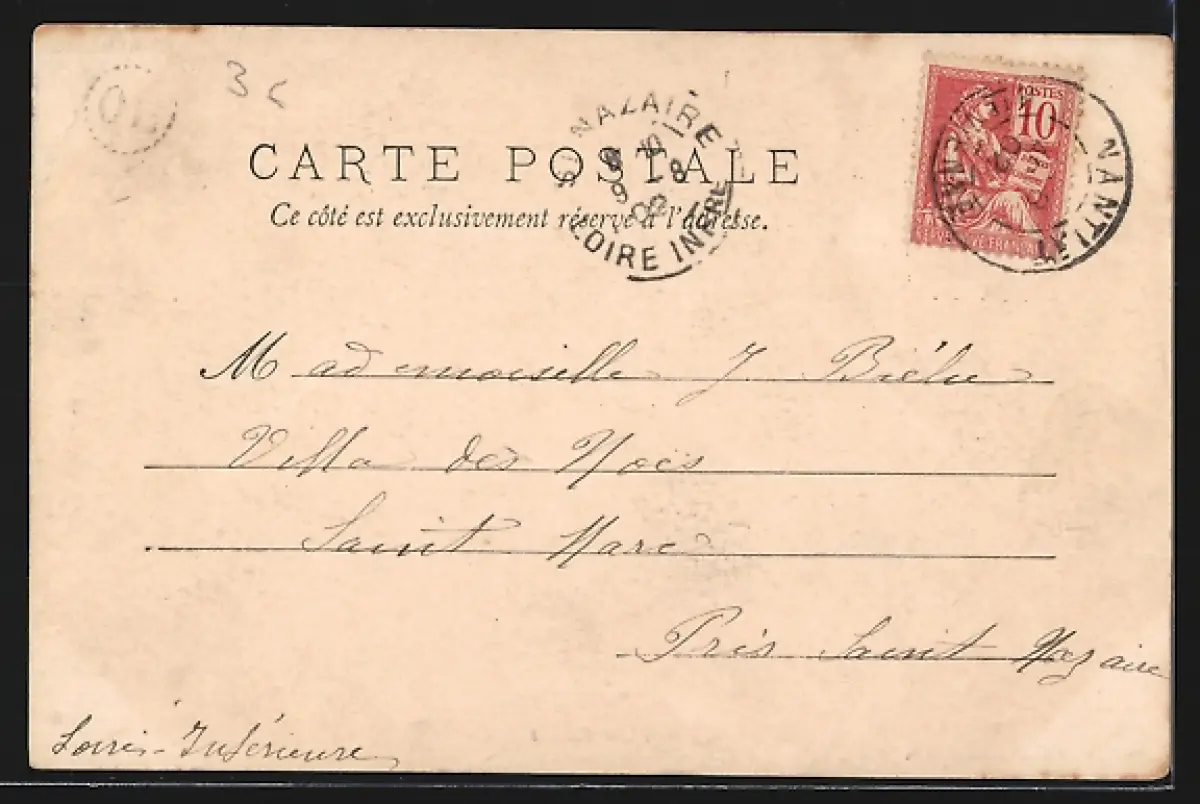 3c
CARTE POSTALE
Ce côté est exclusivement réservé à l'adresse.
ST NAZAIRE
LOIRE INFRE
POSTES
10
NANTIAT
Mademoiselle J. Biélu
Villa des Noës
Saint Marc
Près Saint Nazaire
Loire-Inférieure